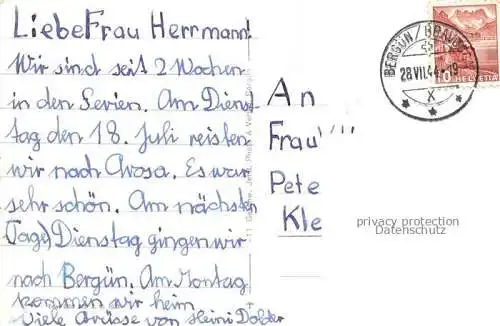 Liebe Frau Herrmann!
Wir sind seit 2 Wochen
in den Ferien. Am Diens-
tag den 18. Juli reisten
wir nach Arosa. Es war
sehr schön. Am nächsten
(Tage) Dienstag gingen wir
nach Bergün. Am Montag
kommen wir heim
Viele Grüsse von Heini
An
Frau
Pete
Kle
BERGÜN
28.VII.44
X
10 HELVETIA
privacy protection
Datenschutz